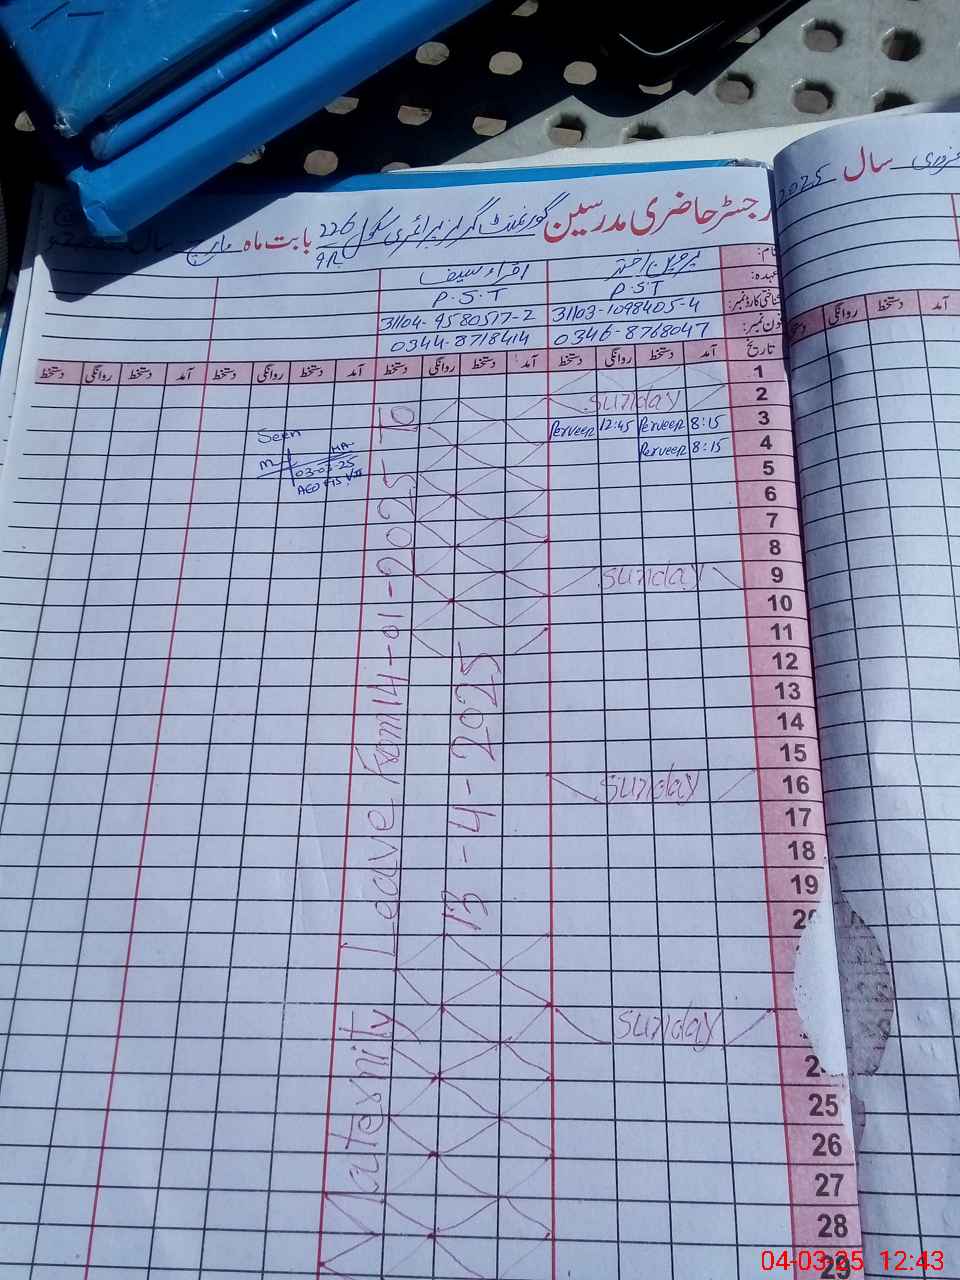 رجسٹر حاضری مدرسین گورنمنٹ گرلز پرائمری سکول 226/9R بابت ماہ مارچ سال
سال 2025
نام: پروین اختر اقراء سیف
عہدہ: P.S.T P.S.T
شناختی کارڈ نمبر: 31103-1098405-4 31104-9580517-2
فون نمبر: 0346-8768047 0344-8718414
تاریخ
آمد دستخط روانگی دستخط آمد دستخط روانگی دستخط آمد دستخط روانگی دستخط آمد دستخط روانگی دستخط
آمد دستخط روانگی
1
2 Sunday
3 8:15 Perveen 12:45 Perveen
4 8:15 Perveen
5
6
7
8
9 Sunday
10
11
12
13
14
15
16 Sunday
17
18
19
Sunday
25
26
27
28
29
Maternity Leave From 14-01-2025 To
13-4-2025
Seen
03-03-25
AEO
04-03-25 12:43